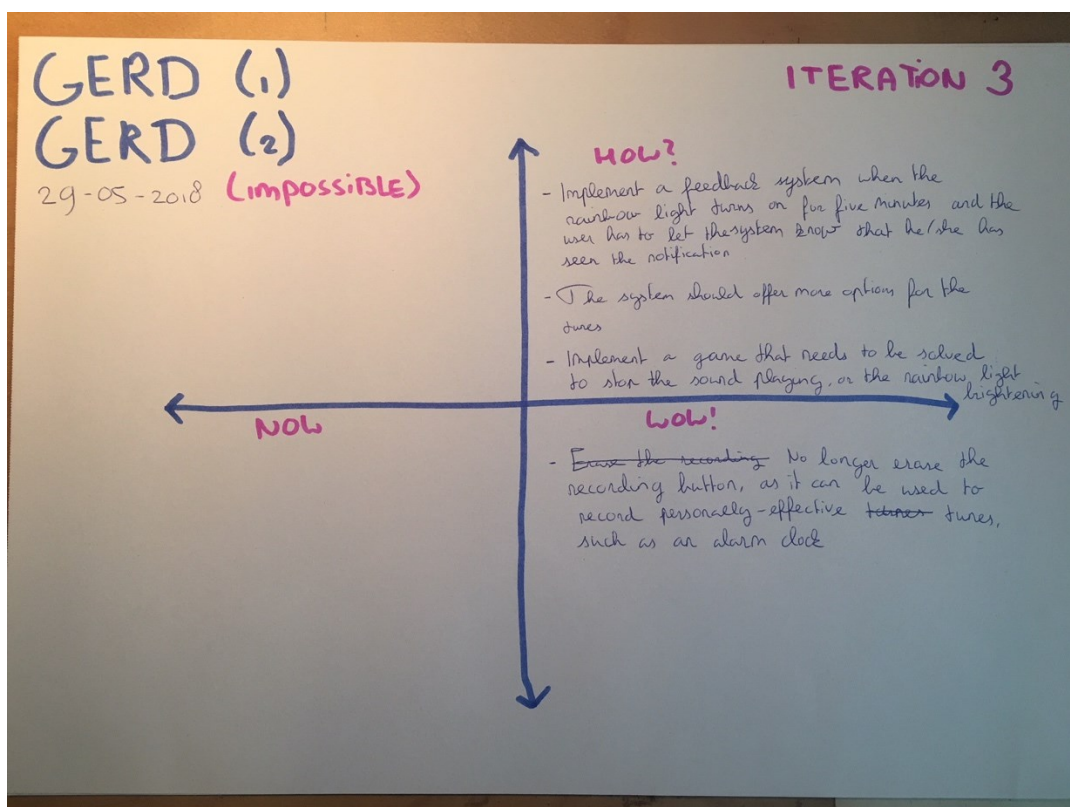 GERD (1)
GERD (2)
29-05-2018 (IMPOSSIBLE)
ITERATION 3
HOW?
- Implement a feedback system when the
rainbow light turns on for five minutes and the
user has to let the system know that he/she has
seen the notification
- The system should offer more options for the
tunes
- Implement a game that needs to be solved
to stop the sound playing, or the rainbow light
brightening
NOW
WOW!
- Erase the recording No longer erase the
recording button, as it can be used to
record personally-effective tunes,
such as an alarm clock